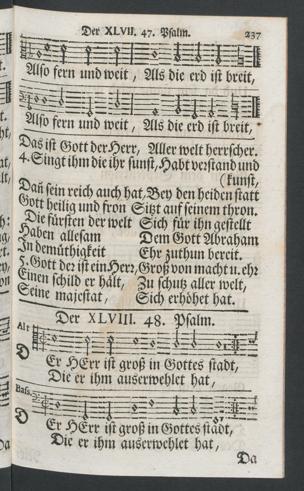 Der XLVII. 47. Psalm. 237
Also fern und weit, Als die erd ist breit,
Also fern und weit, Als die erd ist breit,
Das ist Gott der Herr, Aller welt herrscher.
4. Singt ihm die ihr kunst, Habt verstand und
(kunst,
Dañ sein reich auch hat, Bey den heiden statt
Gott heilig und fron Sitzt auf seinem thron.
Die fürsten der welt Sich für ihn gestellt
Haben allesam Dem Gott Abraham
In demüthigkeit Ehr zuthun bereit.
5. Gott der ist ein Herr, Groß von macht u. ehr
Einen schild er hält, Zu schutz aller welt,
Seine majestat, Sich erhöhet hat.
Der XLVIII. 48. Psalm.
Alt
DEr HErr ist groß in Gottes stadt,
Die er ihm auserwehlet hat,
Bass.
DEr HErr ist groß in Gottes stadt,
Die er ihm auserwehlet hat,
Da